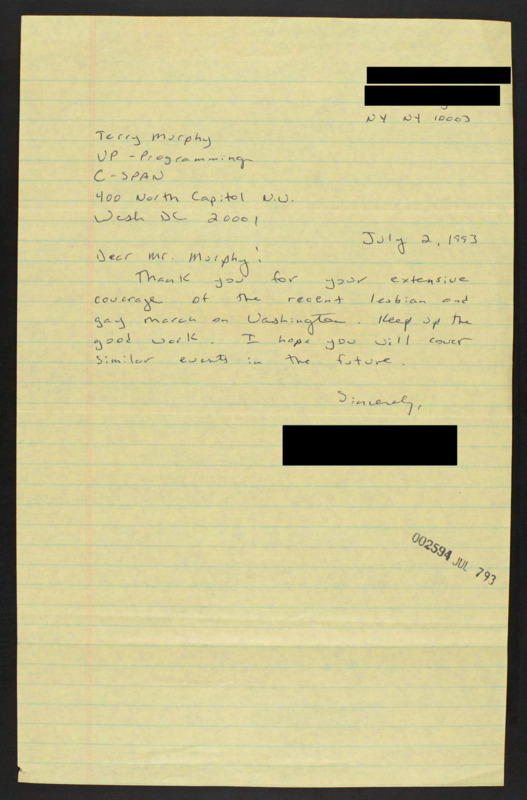 NY NY 10003
Terry Murphy
VP - Programming
C-SPAN
400 North Capitol N.W.
Wash DC 20001
July 2, 1993
Dear Mr. Murphy:
Thank you for your extensive
coverage of the recent lesbian and
gay march on Washington. Keep up the
good work. I hope you will cover
similar events in the future.
Sincerely,
002594 JUL 793